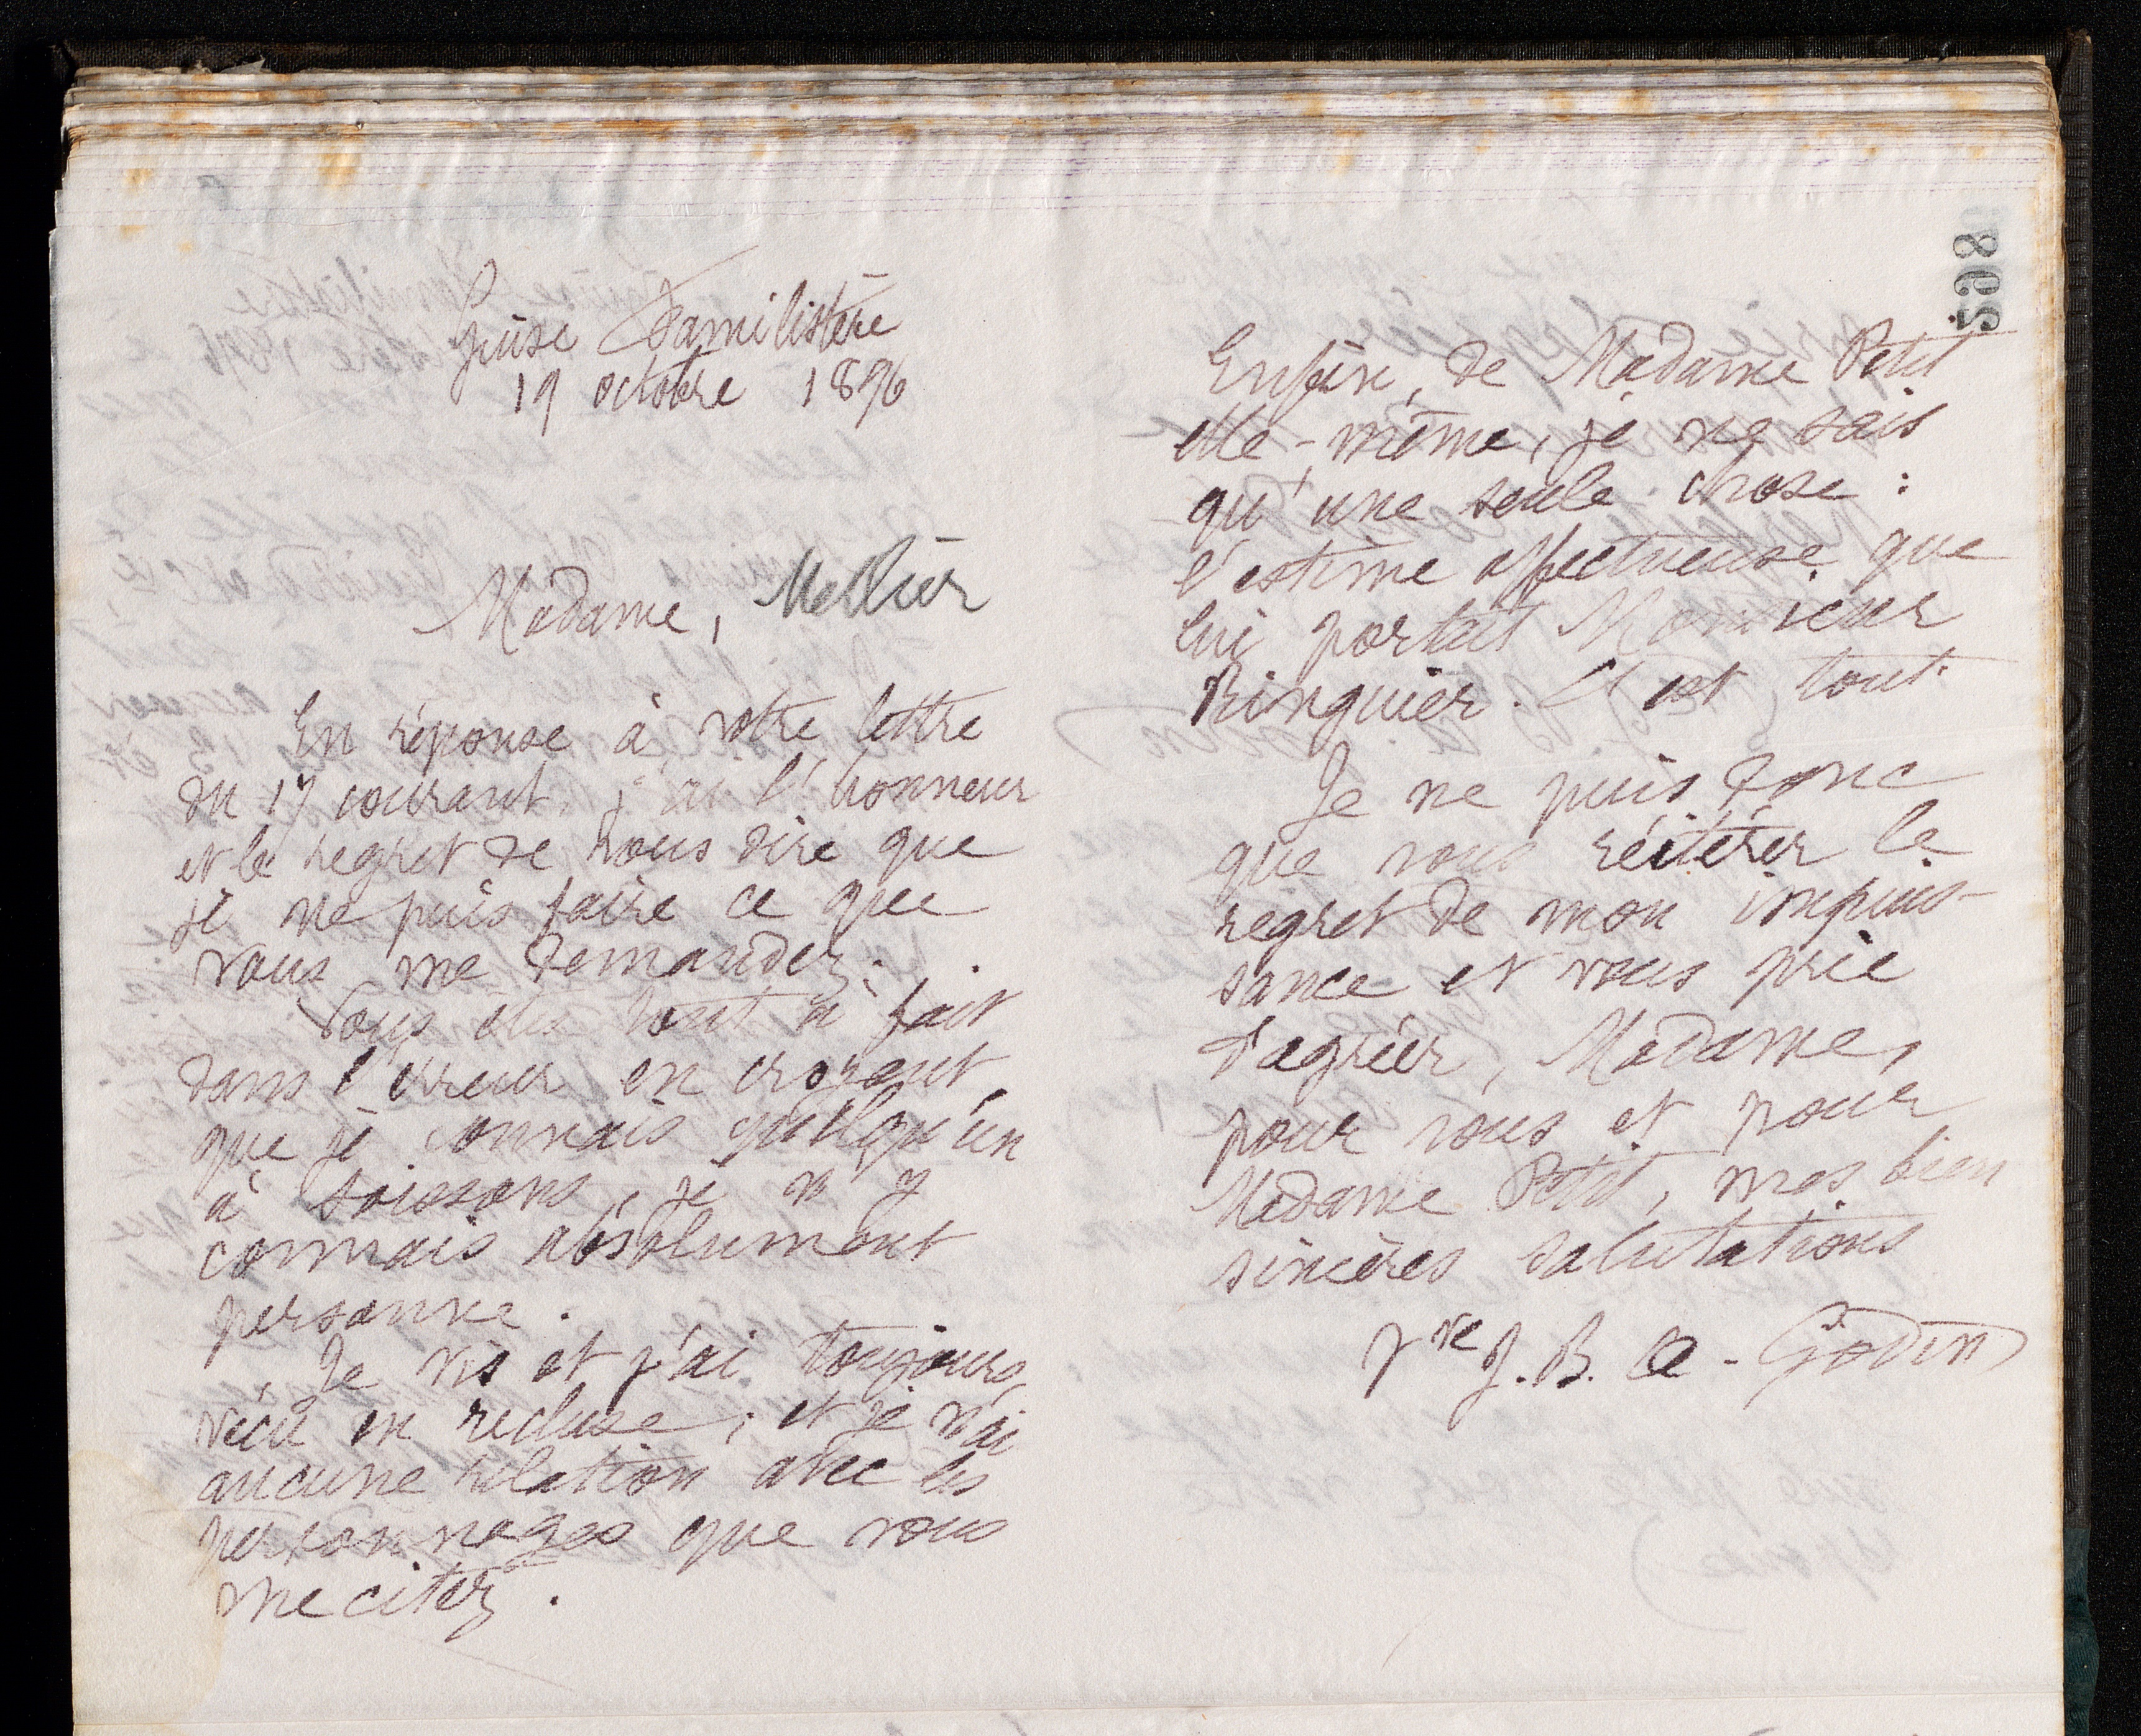 Guise Familistère
19 octobre 1896
Madame, Mellier
En réponse à votre lettre
du 17 courant, j'ai l'honneur
et le regret de vous dire que
je ne puis faire ce que
vous me demandez.
Vous êtes tout à fait
dans l'erreur en croyant
que je connais quelqu'un
à Soissons, je n'y
connais absolument
personne.
Je vis et j'ai toujours
vécu en recluse ; et je n'ai
aucune relation avec les
personnages que vous
me citez.
598
Enfin, de Madame Petit
elle-même, je ne sais
qu'une seule chose :
l'estime affectueuse que
lui portait Monsieur
Ringuier. C'est tout
Je ne puis donc
que vous réitérer le
regret de mon impuis-
sance et vous prie
d'agréer, Madame,
pour vous et pour
Madame Petit, mes bien
sincères salutations
Vve J. B. A. Godin